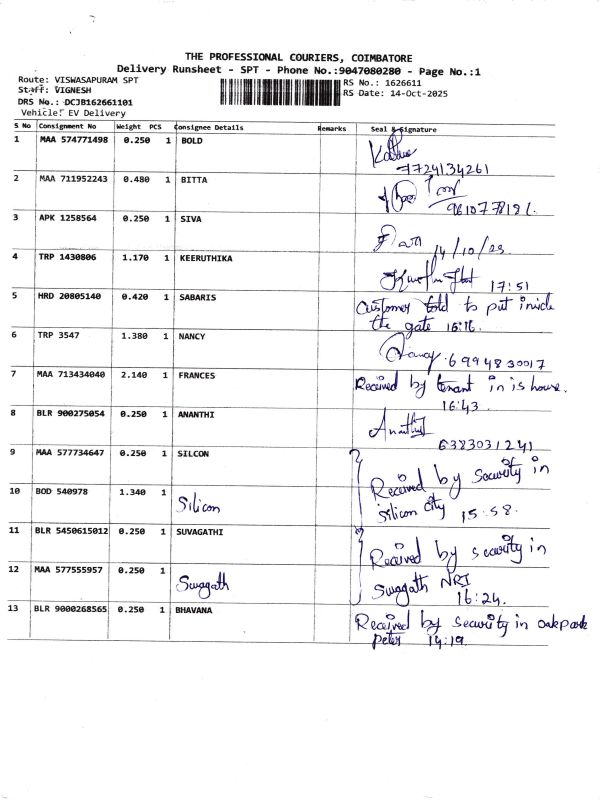 THE PROFESSIONAL COURIERS, COIMBATORE
Delivery Runsheet - SPT - Phone No.:9047080280 - Page No.:1
Route: VISWASAPURAM SPT
RS No.: 1626611
Staff: VIGNESH
RS Date: 14-Oct-2025
DRS No.: DCJB162661101
Vehicle: EV Delivery
S No Consignment No Weight PCS Consignee Details Remarks Seal & Signature
1 MAA 574771498 0.250 1 BOLD
7724134261
2 MAA 711952243 0.480 1 BITTA
3 APK 1258564 0.250 1 SIVA
14/10/25
4 TRP 1430806 1.170 1 KEERUTHIKA
17:51
5 HRD 20805140 0.420 1 SABARIS Customer told to put inside
the gate 16:16.
6 TRP 3547 1.380 1 NANCY
Nancy 6994830017
7 MAA 713434040 2.140 1 FRANCES Received by tenant in is house.
16:43.
8 BLR 900275054 0.250 1 ANANTHI
6383031241
9 MAA 577734647 0.250 1 SILCON
Received by Security in
10 BOD 540978 1.340 1 Silicon
silicon city 15:58.
11 BLR 5450615012 0.250 1 SUVAGATHI
Received by security in
12 MAA 577555957 0.250 1 Swagath
Swagath NRI
16:24.
13 BLR 9000268565 0.250 1 BHAVANA Received by security in oakpark
peter 14:19.